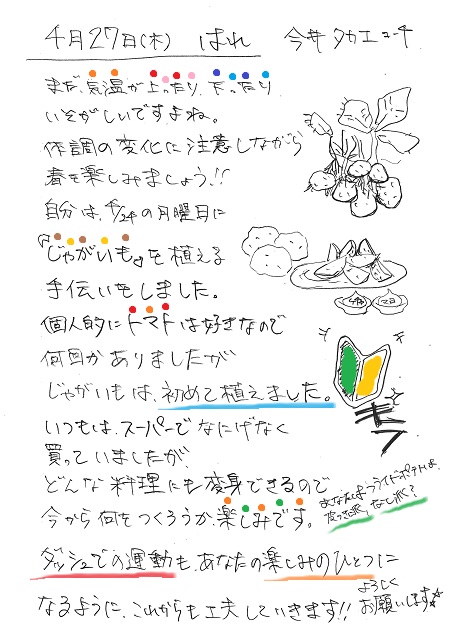 4月27日(木) はれ 今井タカユーキ
まだ、気温が上ったり、下ったり
いそがしいですよね。
体調の変化に注意しながら
春を楽しみましょう!!
自分は、4/24の月曜日に
『じゃがいも』を植える
手伝いをしました。
個人的にトマトは好きなので
何回かありましたが
じゃがいもは、初めて植えました。
いつもは、スーパーでなにげなく
買っていましたが、
どんな料理にも変身できるので
今から何をつくろうか、楽しみです。
あなたは、フライドポテトは、
皮つき派?なし派?
ダッシュでの運動も、あなたの楽しみのひとつに
なるように、これからも工夫していきます!!
よろしく
お願いします☆